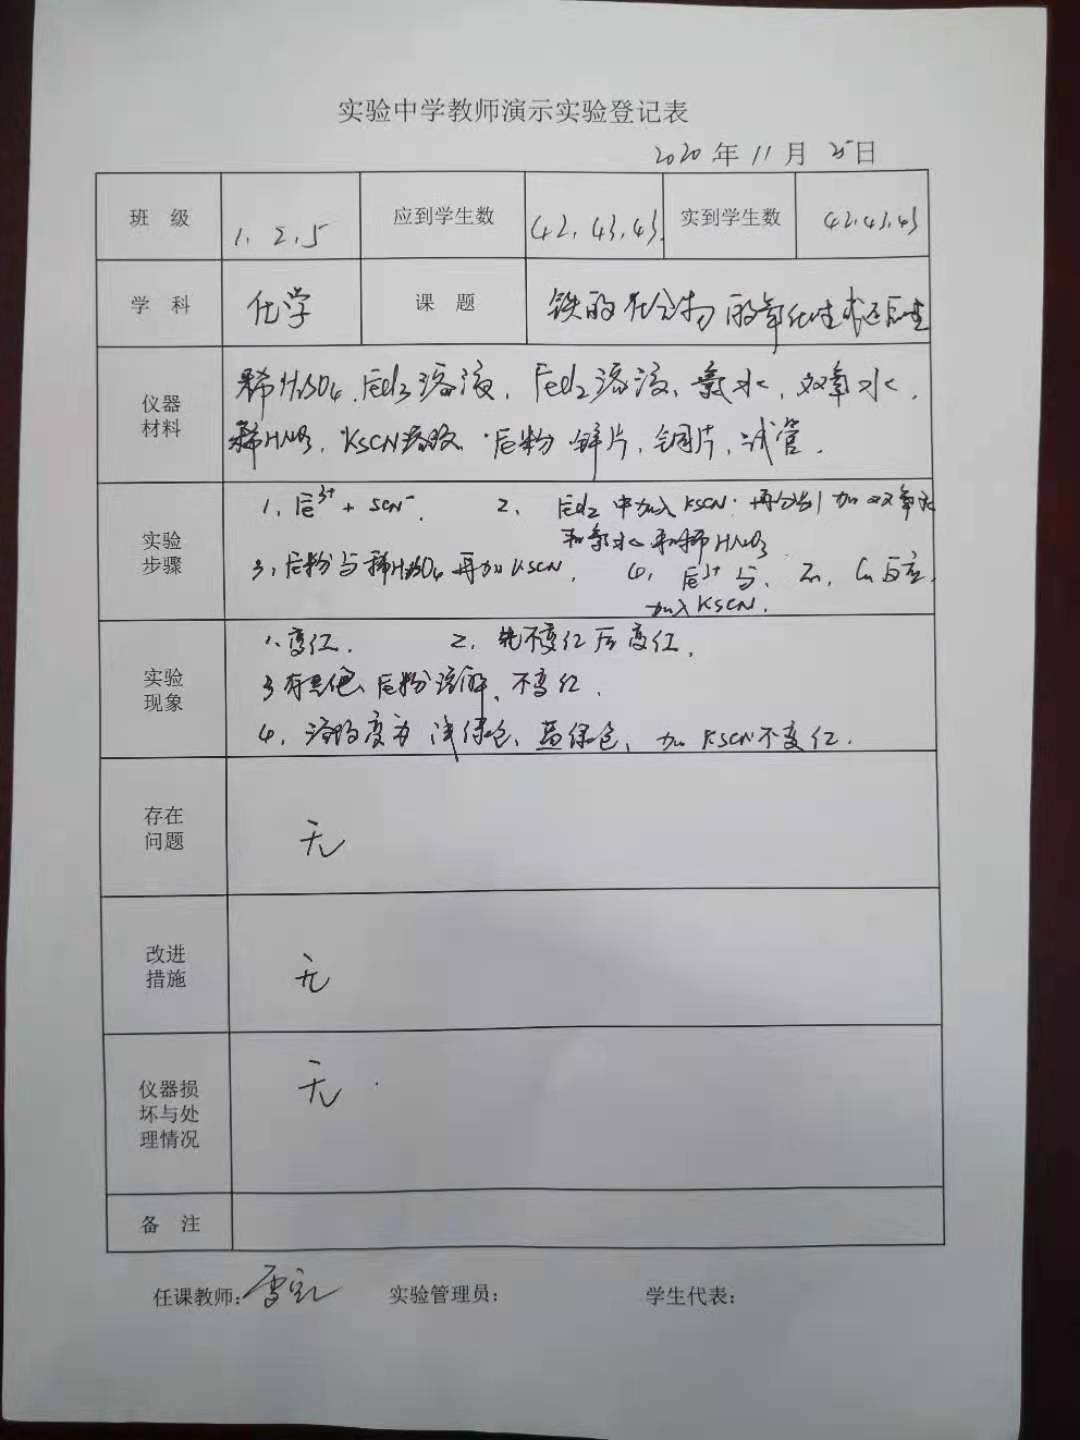 实验中学教师演示实验登记表
2020 年 11 月 25 日
班 级 1、2、5 应到学生数 42、43、43. 实到学生数 42、43、43
学 科 化学 课 题 铁的化合物的氧化性或还原性
仪器材料
稀H₂SO₄、FeCl₃溶液、FeCl₂溶液、氯水、双氧水、
稀HNO₃、KSCN溶液、Fe粉 锌片、铜片、试管.
实验步骤
1、Fe³⁺ + SCN⁻. 2、FeCl₂中加入KSCN: 再分别加双氧水
和氯水和稀HNO₃
3、Fe粉与稀H₂SO₄再加KSCN. 4、Fe³⁺与、Zn、Cu反应.
加入KSCN.
实验现象
1、变红. 2、先不变红后变红.
3 有 Fe粉溶解、不变红.
4、溶液变为浅绿色、蓝绿色、加KSCN不变红.
存在问题
无
改进措施
无
仪器损坏与处理情况
无
备 注
任课教师: 实验管理员: 学生代表: